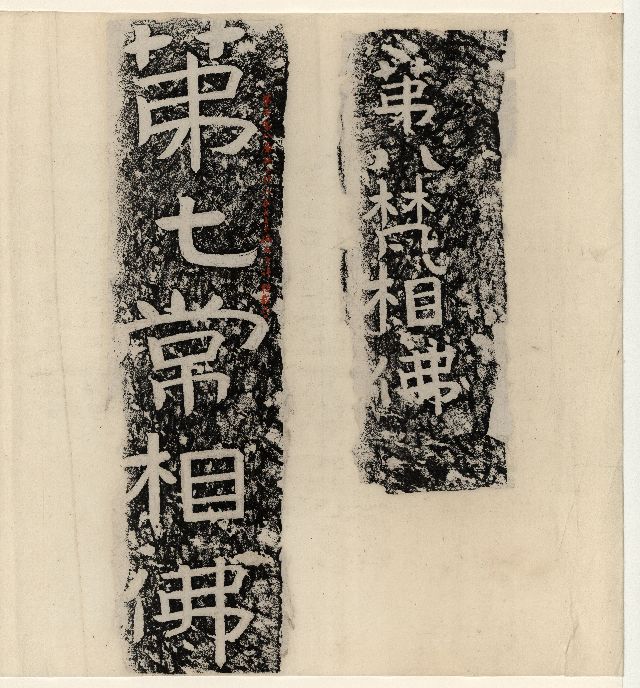 苐八梵相佛
苐七常相佛